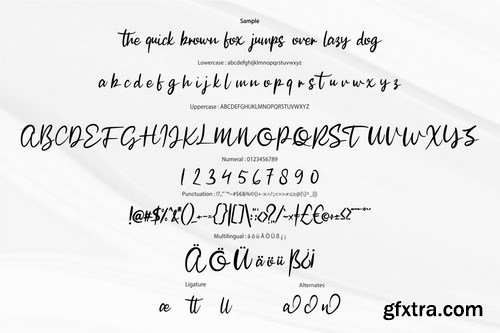 Sample
the quick brown fox jumps over lazy dog
Lowercase : abcdefghijklmnopqrstuvwxyz
a b c d e f g h i j k l m n o p q r s t u v w x y z
Uppercase : ABCDEFGHIJKLMNOPQRSTUVWXYZ
ABCDEFGHIJKLMNOPQRSTUVWXYZ
Numeral : 0123456789
1 2 3 4 5 6 7 8 9 0
Punctuation :
Multilingual : ä ö ü Ä Ö Ü ß ¿ ¡
Ä Ö Ü ä ö ü ß ¿ ¡
Ligature Alternates
æ tt ll
gfxtra.com